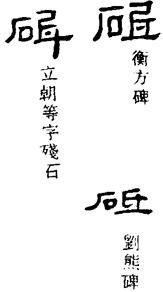 砥
衡方碑
砥
劉熊碑
砥
立朝等字殘石